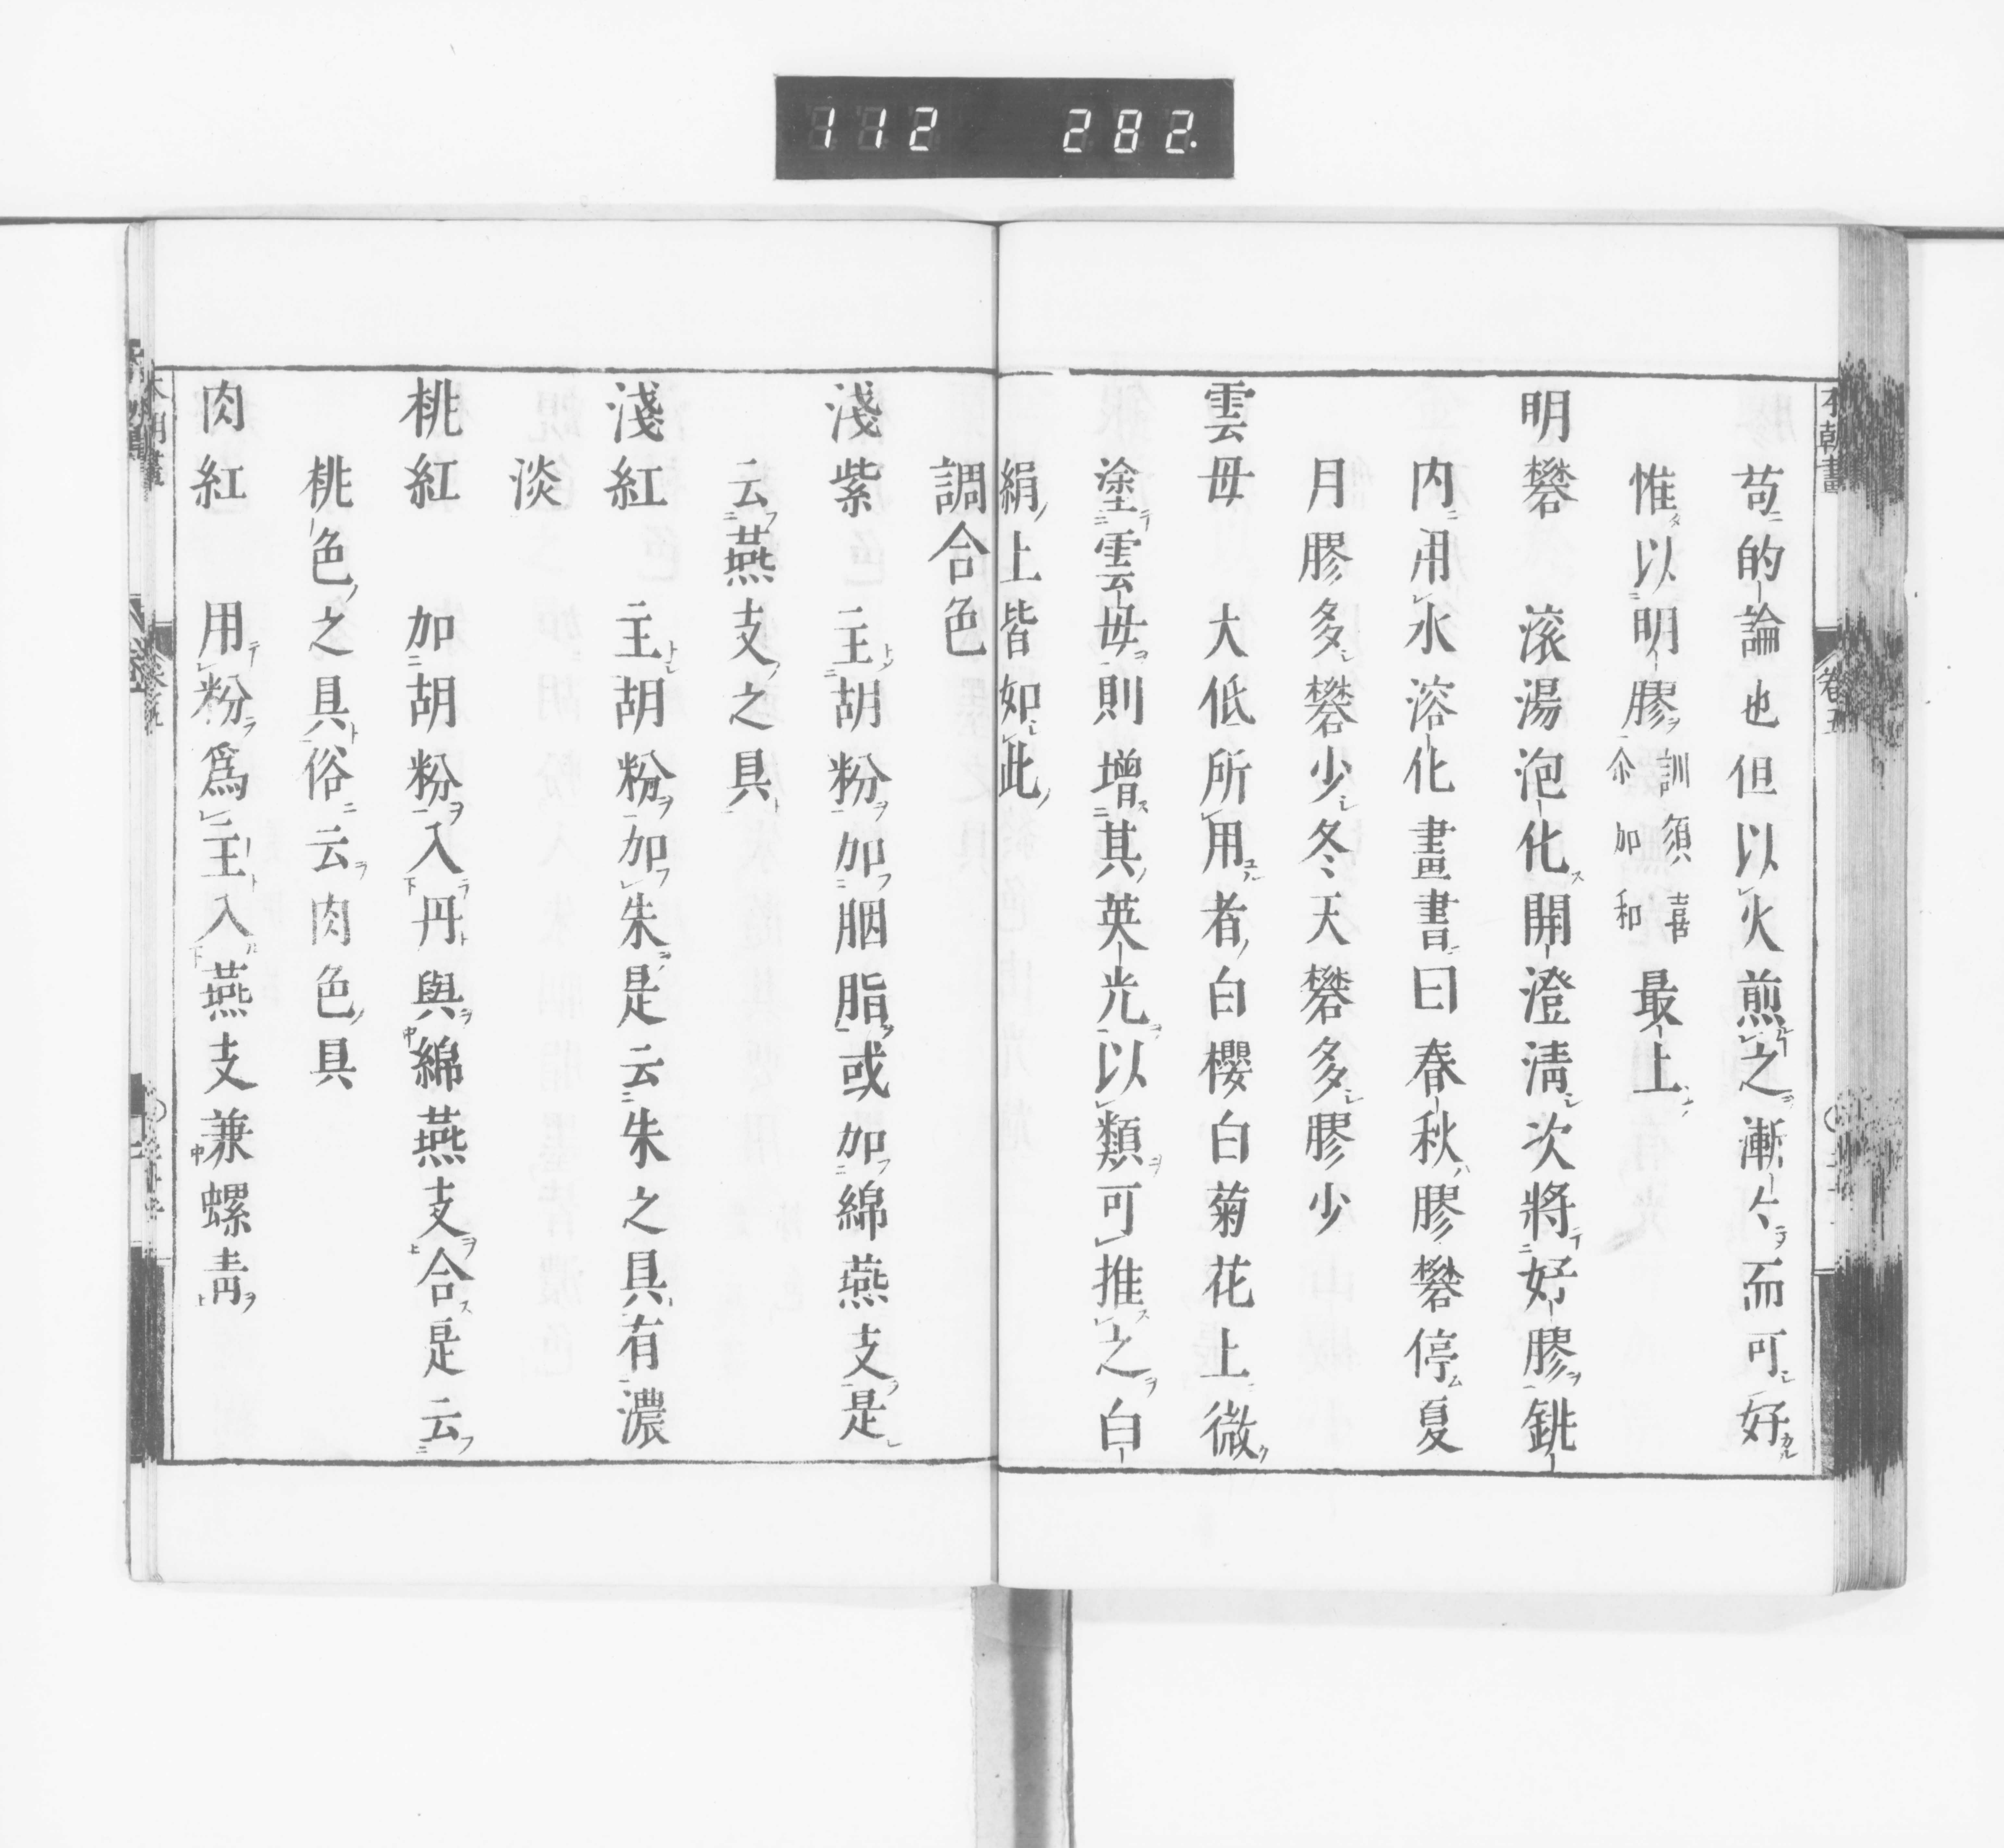 112 282.
本朝畫
卷五
苟的論也但以火煎之漸々而可好
惟以明膠訓須喜尒加和最上
明礬 滚湯泡化開澄清次將好膠銚
内用水溶化畫書曰春秋膠礬停夏
月膠多礬少冬天礬多膠少
雲母 大低所用者白櫻白菊花上微
塗雲母則增其英光以類可推之白
絹上皆如此
調合色
淺紫 主胡粉加胭脂或加綿燕支是
云燕支之具
淺紅 主胡粉加朱是云朱之具有濃
淡
桃紅 加胡粉入丹與綿燕支合是云
桃色之具俗云肉色具
肉紅 用粉爲主入燕支兼螺青